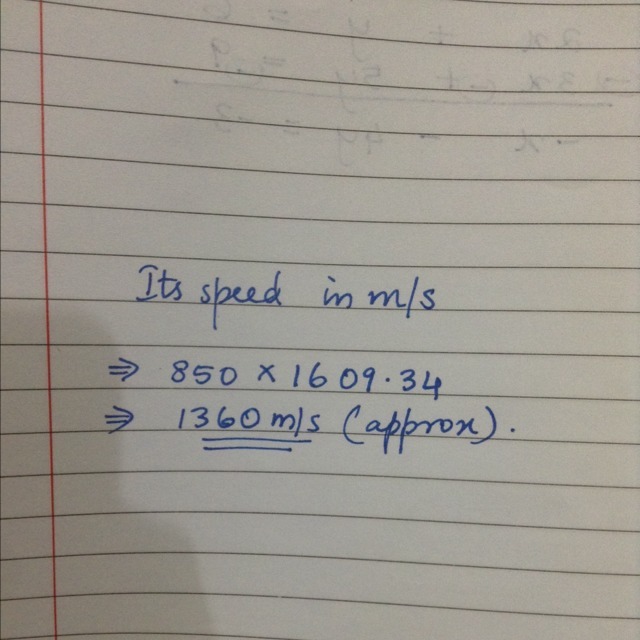 Its speed in m/s
⇒ 850 × 1609.34
⇒ 1360 m/s (approx).